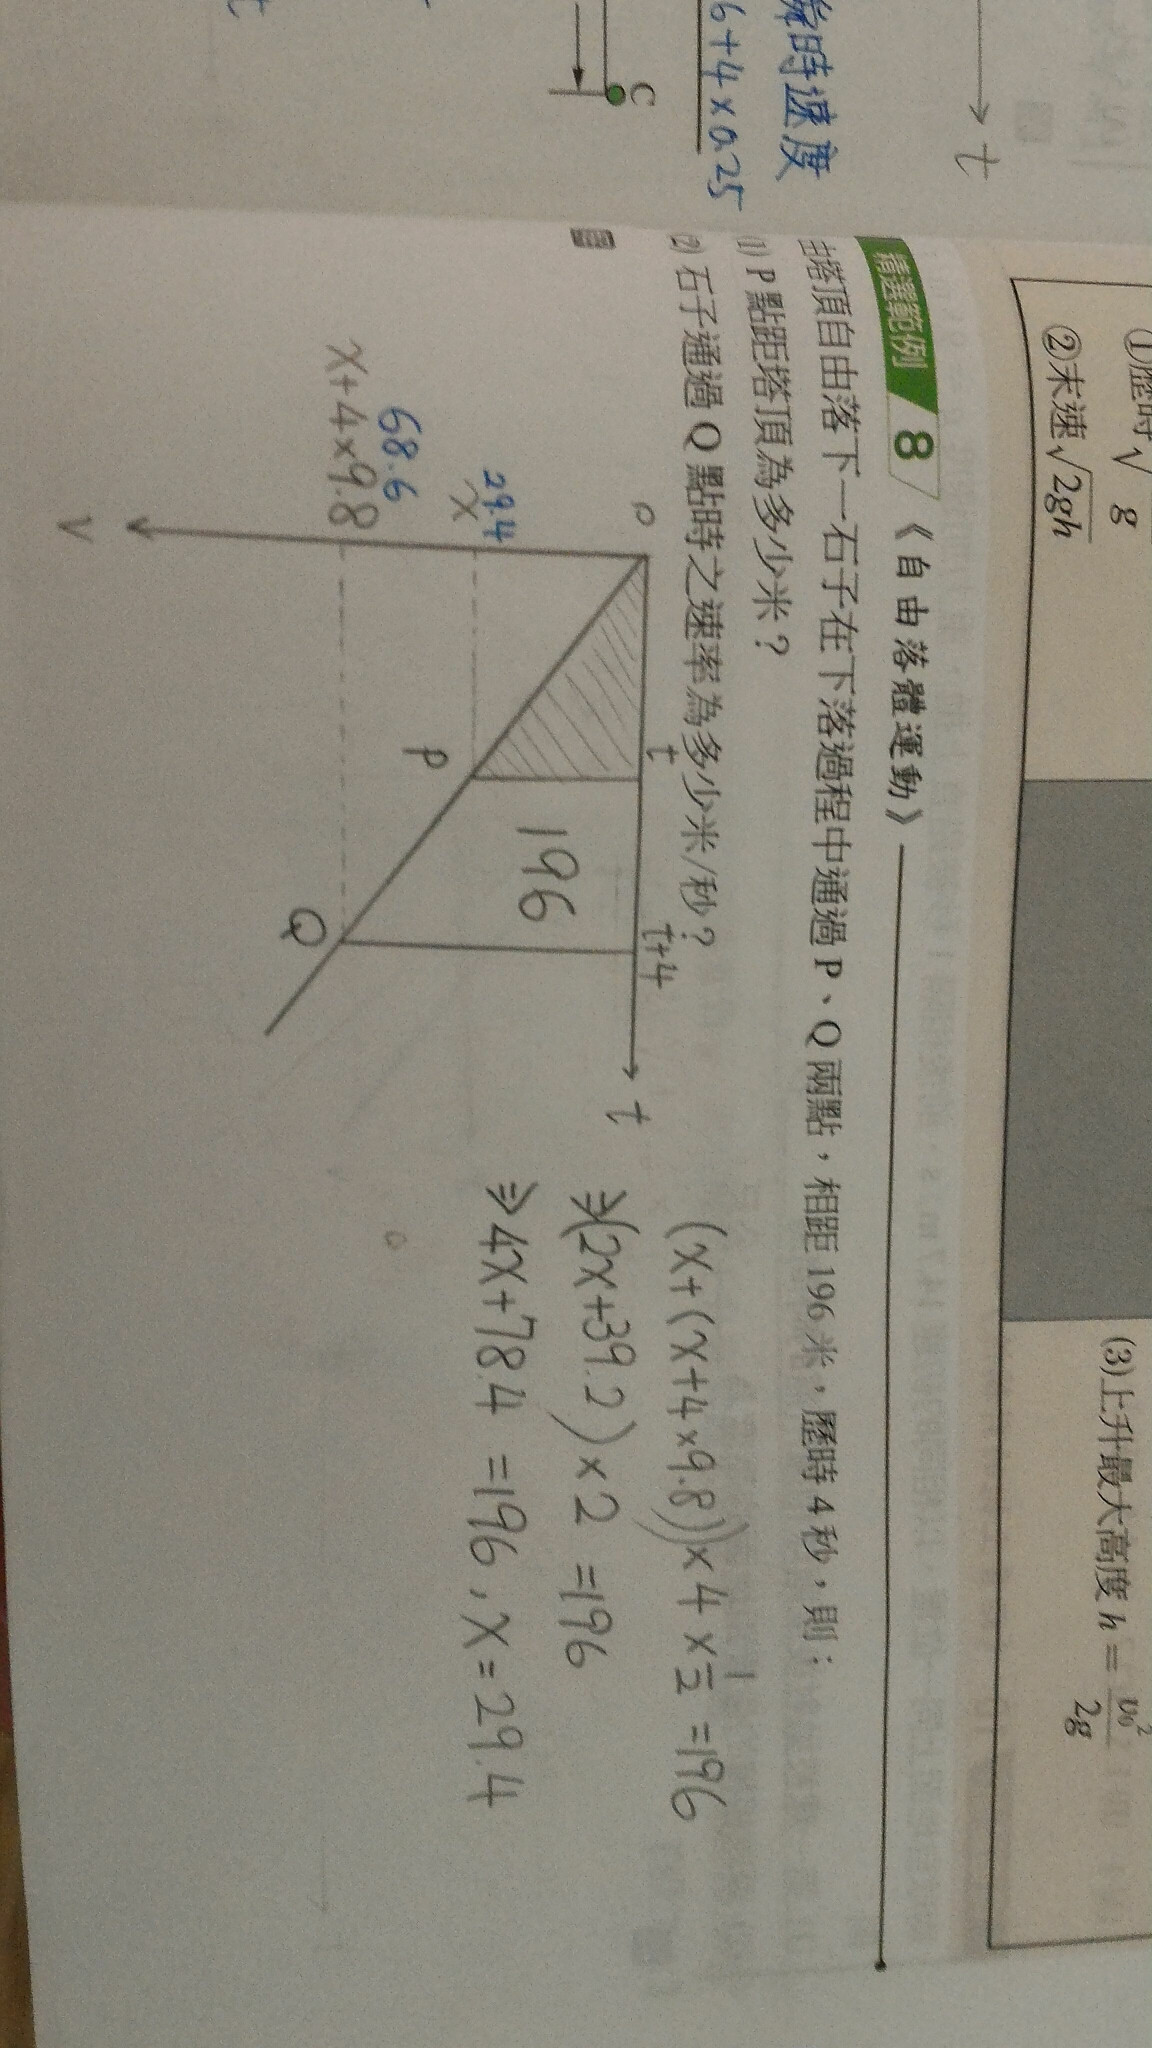 ①歷時√
g
②末速√2gh
(3)上升最大高度 h = v₀²/2g
t
時速度
6+4×0.25
C
精選範例 8 《自由落體運動》
塔頂自由落下一石子在下落過程中通過 P、Q 兩點，相距 196 米，歷時 4 秒，則：
(1) P 點距塔頂為多少米？
(2) 石子通過 Q 點時之速率為多少米/秒？
o
t
t+4
t
29.4
x
68.6
x+4×9.8
196
P
Q
v
(x+(x+4×9.8))×4×1/2=196
⇒(2x+39.2)×2=196
⇒4x+78.4=196，x=29.4